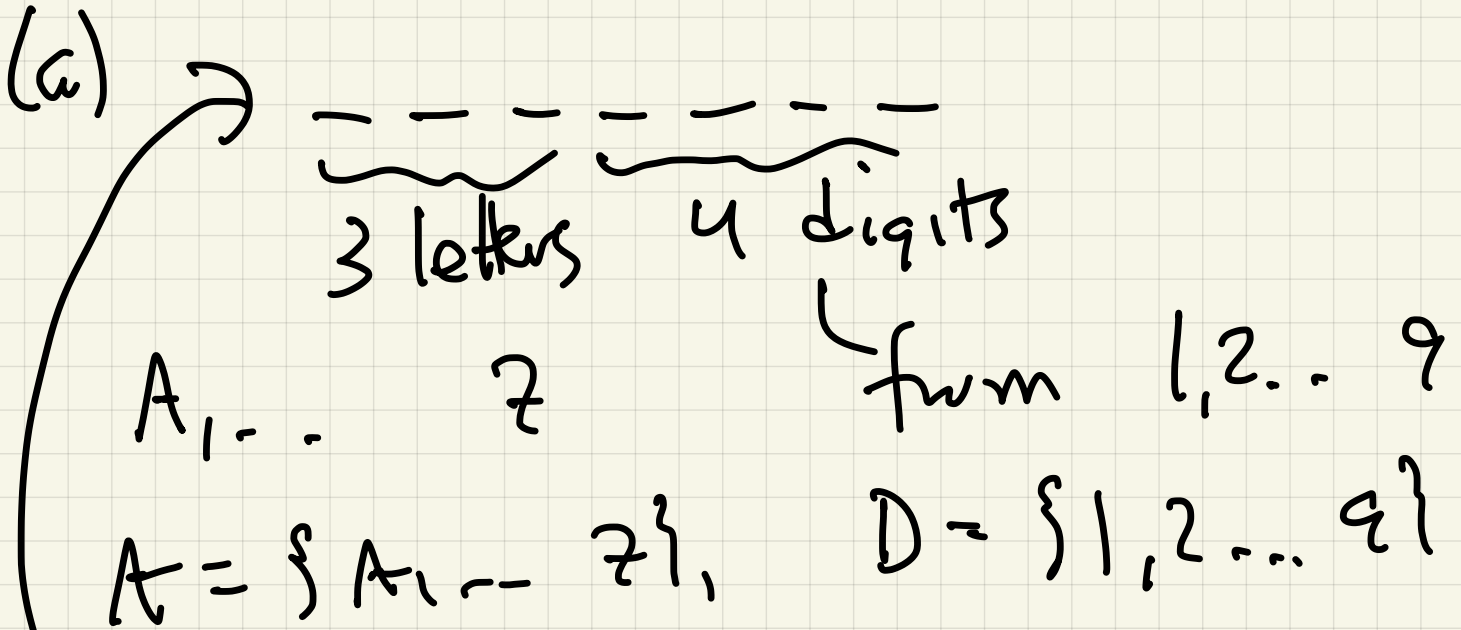 (a)
_ _ _ _ _ _ _
3 letters 4 digits
A, - - Z from 1, 2 - - 9
A = { A, - - Z }, D = { 1, 2 - - - 9 }